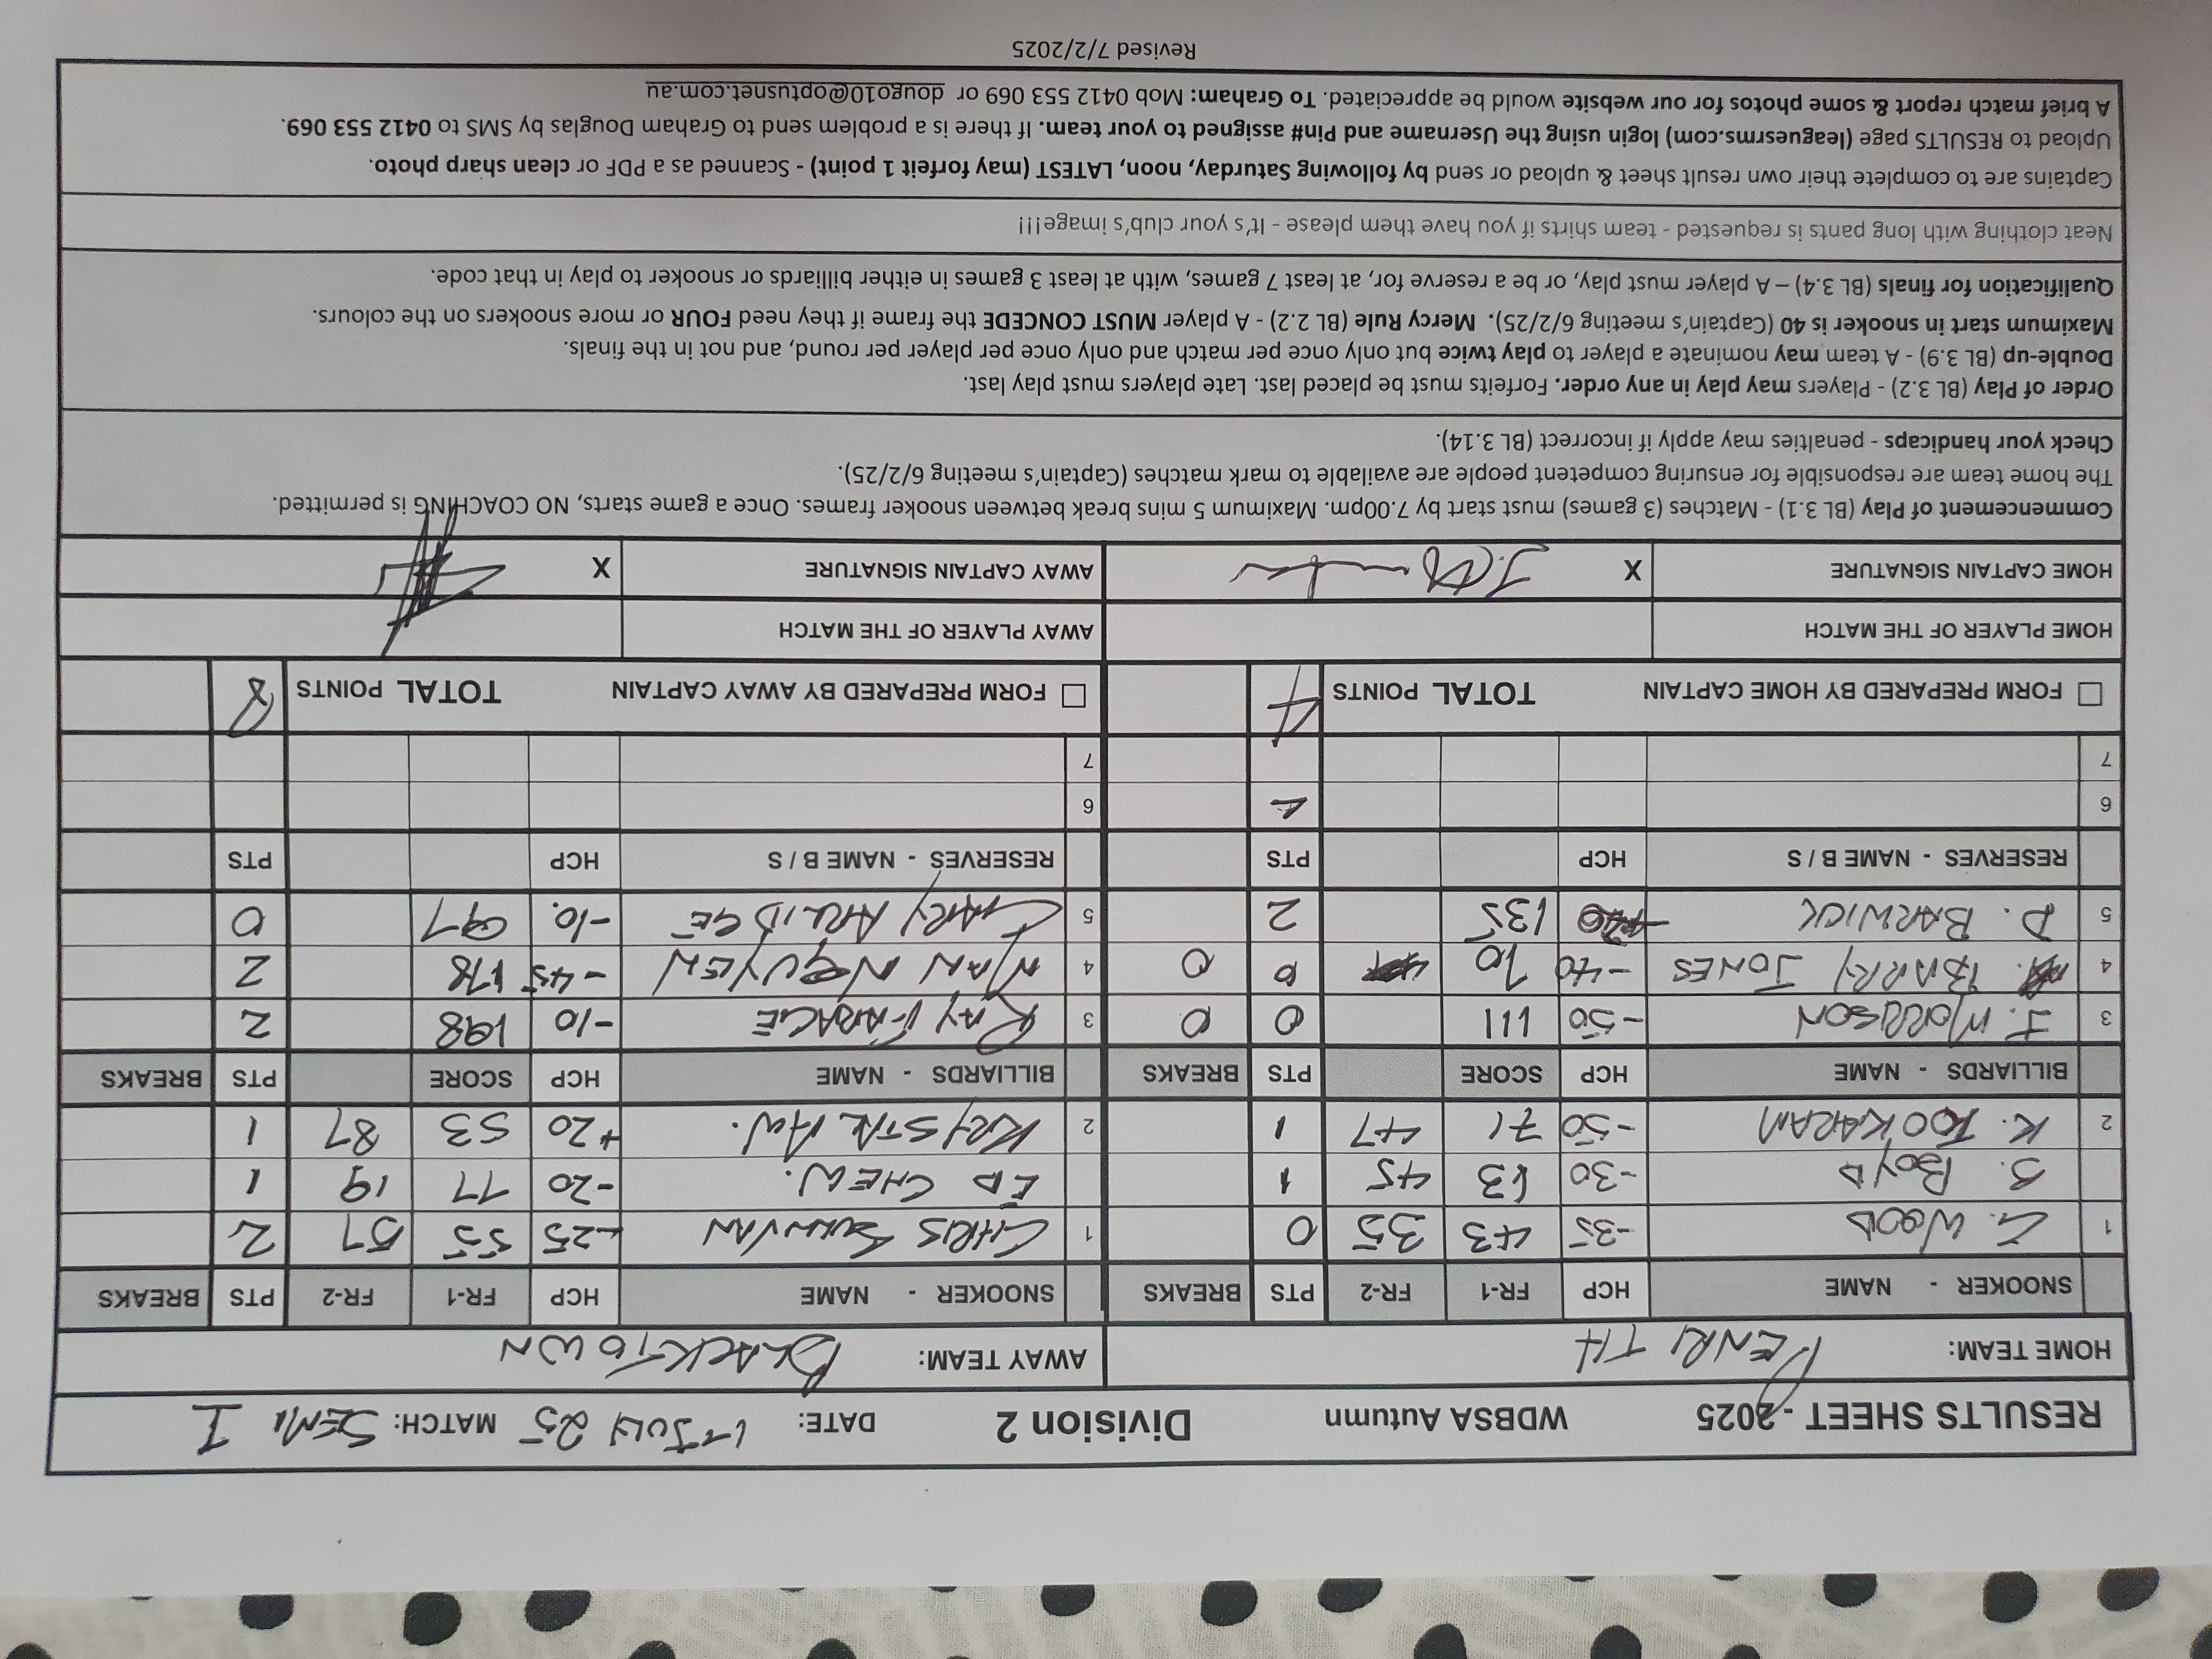 RESULTS SHEET - 2025 WDBSA Autumn Division 2 DATE: JULY 25 MATCH: SEMI I
HOME TEAM: PENRITH AWAY TEAM: BLACKTOWN
SNOOKER - NAME HCP FR-1 FR-2 PTS BREAKS SNOOKER - NAME HCP FR-1 FR-2 PTS BREAKS
1 G. WOOD -35 43 35 0 1 CHRIS SULLIVAN -25 55 57 2
S. BOYD -30 63 45 1 ED CHEW. -20 77 19 1
2 K. TOOKARAM -50 71 47 1 2 KRYSTAL AW. +20 53 87 1
BILLIARDS - NAME HCP SCORE PTS BREAKS BILLIARDS - NAME HCP SCORE PTS BREAKS
3 I. MORRISON -50 111 0 0 3 RAY FARAGE -10 198 2
4 BARRY JONES -40 70 0 0 4 MAN NGUYEN -45 178 2
5 D. BARWICK 135 2 5 GARY ARLIDGE -10. 97 0
RESERVES - NAME B / S HCP PTS RESERVES - NAME B / S HCP PTS
6 6
7 7
FORM PREPARED BY HOME CAPTAIN TOTAL POINTS 4 FORM PREPARED BY AWAY CAPTAIN TOTAL POINTS 8
HOME PLAYER OF THE MATCH AWAY PLAYER OF THE MATCH
HOME CAPTAIN SIGNATURE X AWAY CAPTAIN SIGNATURE X
Commencement of Play (BL 3.1) - Matches (3 games) must start by 7.00pm. Maximum 5 mins break between snooker frames. Once a game starts, NO COACHING is permitted.
The home team are responsible for ensuring competent people are available to mark matches (Captain's meeting 6/2/25).
Check your handicaps - penalties may apply if incorrect (BL 3.14).
Order of Play (BL 3.2) - Players may play in any order. Forfeits must be placed last. Late players must play last.
Double-up (BL 3.9) - A team may nominate a player to play twice but only once per match and only once per player per round, and not in the finals.
Maximum start in snooker is 40 (Captain's meeting 6/2/25). Mercy Rule (BL 2.2) - A player MUST CONCEDE the frame if they need FOUR or more snookers on the colours.
Qualification for finals (BL 3.4) – A player must play, or be a reserve for, at least 7 games, with at least 3 games in either billiards or snooker to play in that code.
Neat clothing with long pants is requested - team shirts if you have them please - It's your club's image!!!
Captains are to complete their own result sheet & upload or send by following Saturday, noon, LATEST (may forfeit 1 point) - Scanned as a PDF or clean sharp photo.
Upload to RESULTS page (leaguesrms.com) login using the Username and Pin# assigned to your team. If there is a problem send to Graham Douglas by SMS to 0412 553 069.
A brief match report & some photos for our website would be appreciated. To Graham: Mob 0412 553 069 or dougo10@optusnet.com.au
Revised 7/2/2025